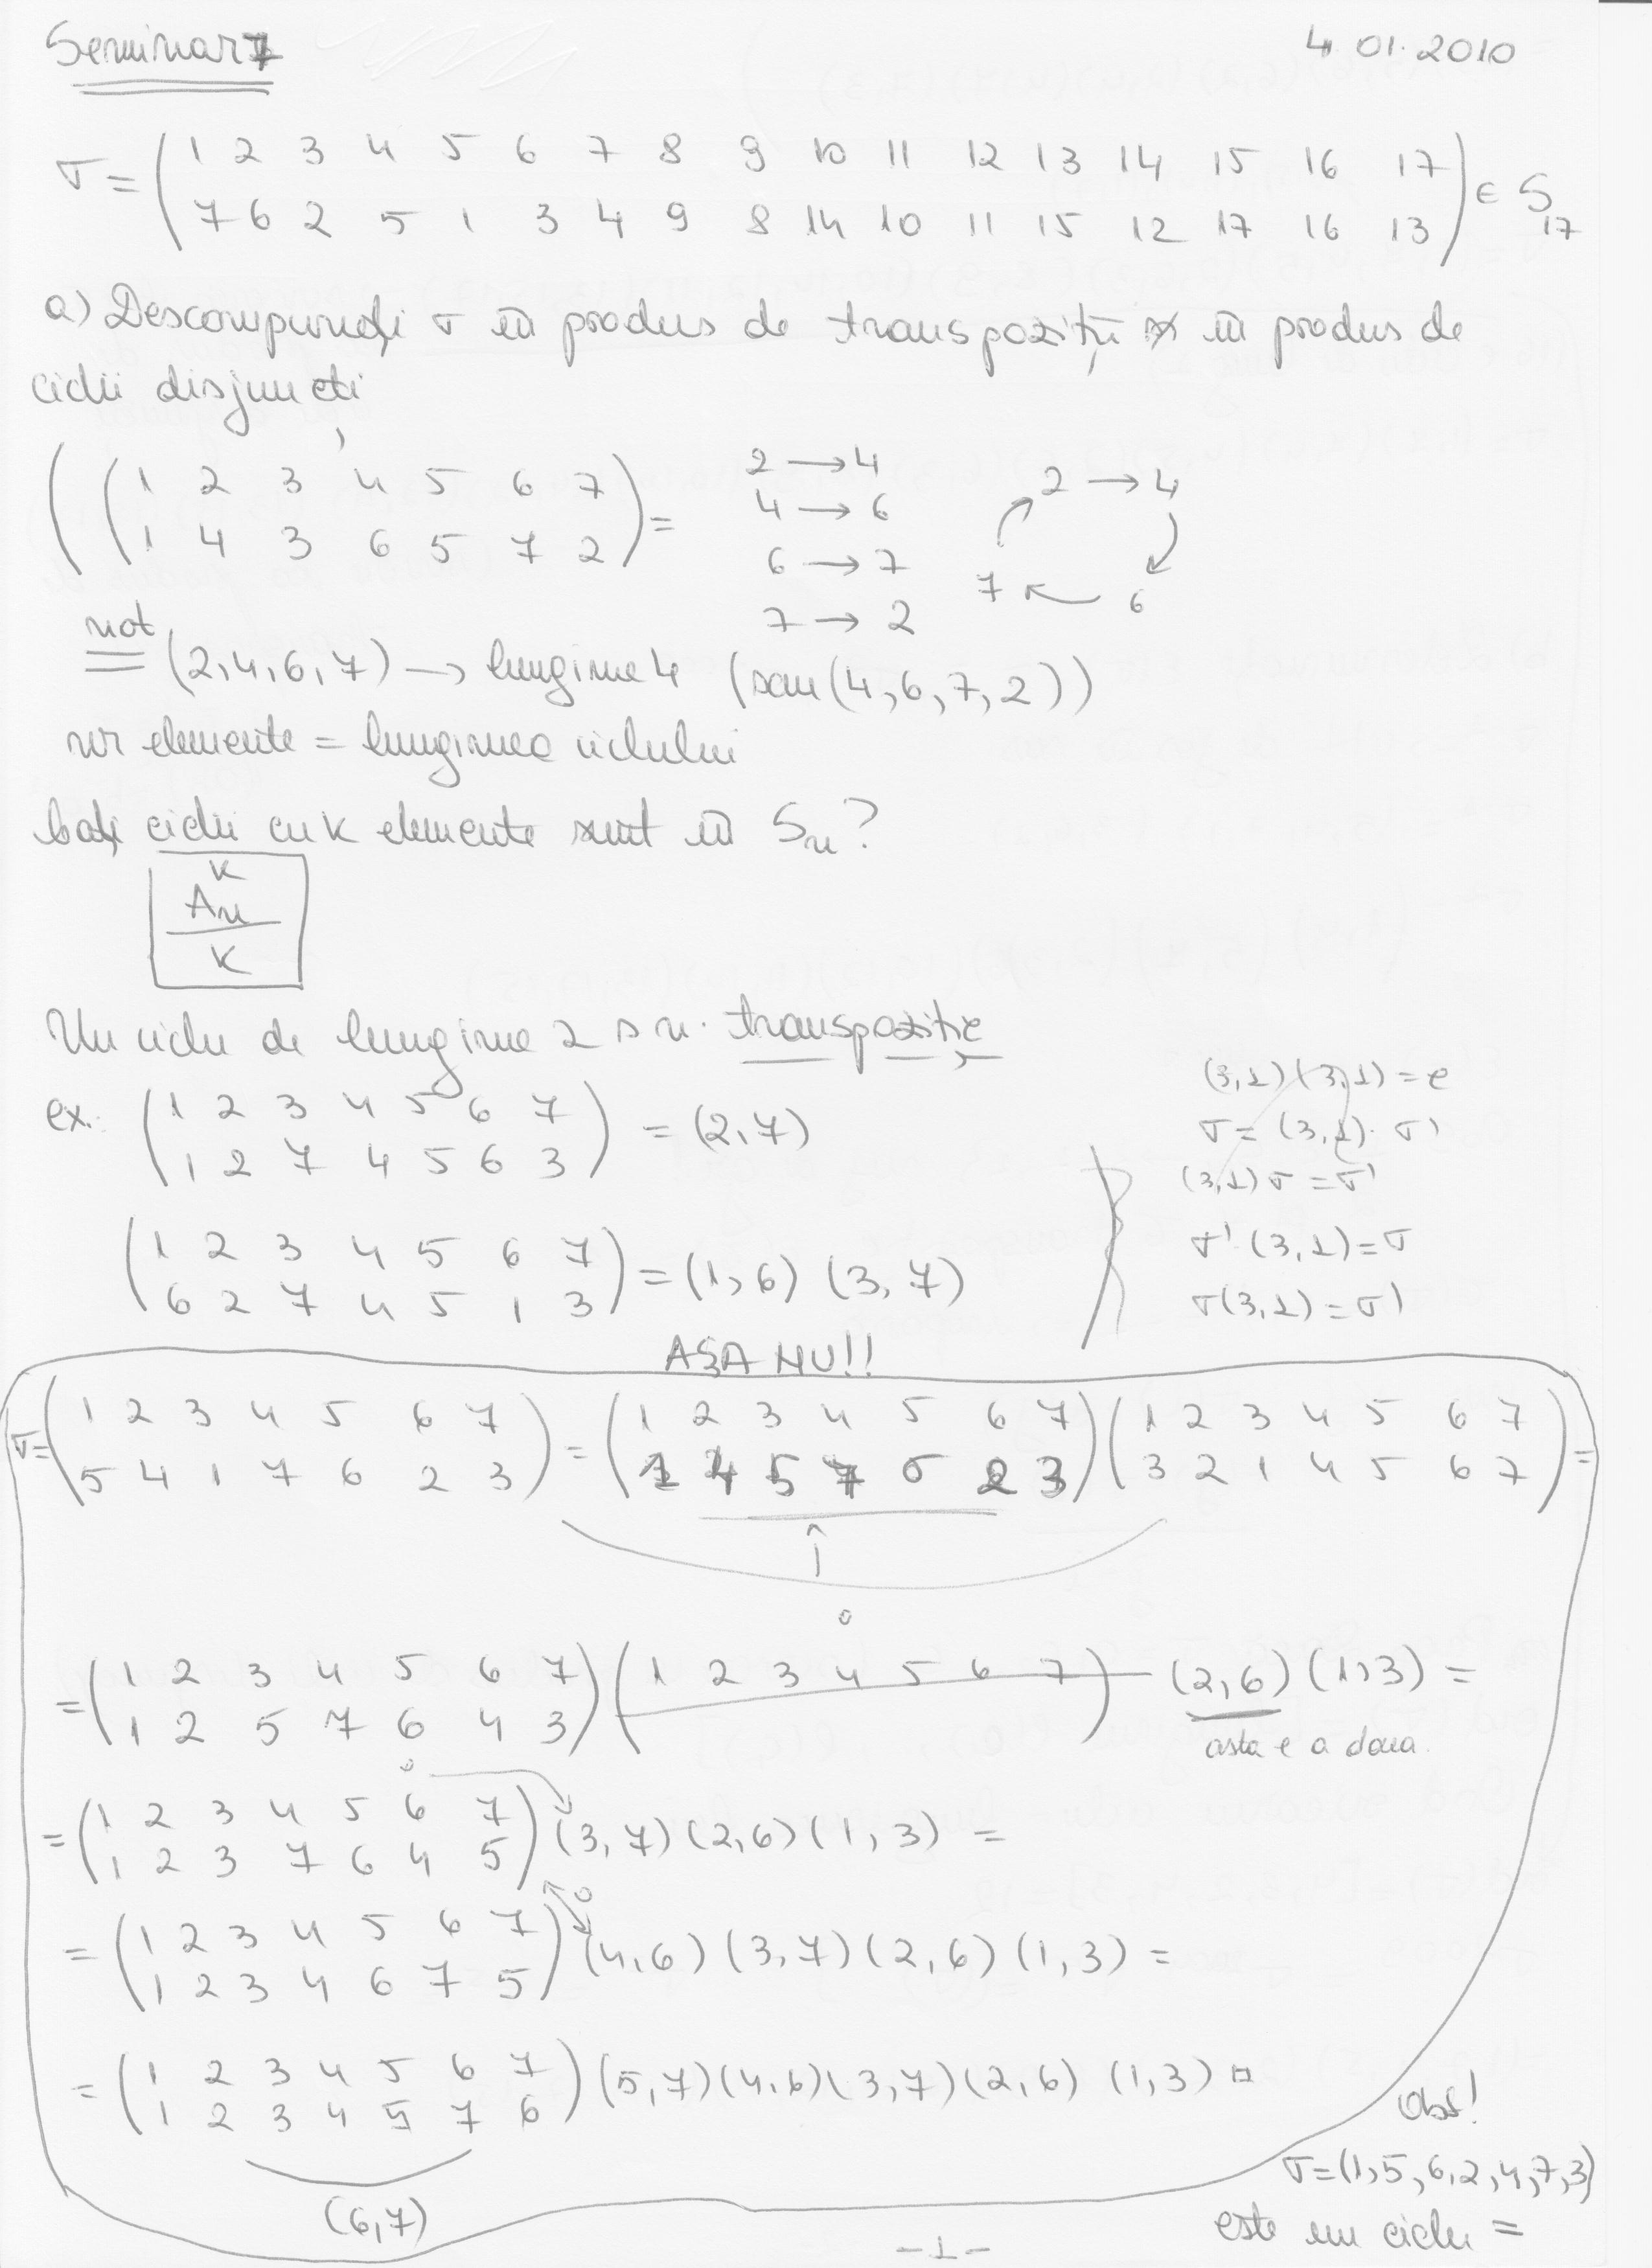 Seminar 7
4 01.2010
σ = ( 1 2 3 4 5 6 7 8 9 10 11 12 13 14 15 16 17 ) ∈ S17
( 7 6 2 5 1 3 4 9 8 14 10 11 15 12 17 16 13 )
a) Descompuneți σ în produs de transpoziții în produs de
cicli disjuncți
( ( 1 2 3 4 5 6 7 ) =
( 1 4 3 6 5 7 2 )
2 → 4
4 → 6
6 → 7
7 → 2
2 → 4
7 ← 6
not
= (2,4,6,7) → lungime 4 (sau (4,6,7,2))
nr elemente = lungimea ciclului
Câți cicli cu k elemente sunt în Sn?
A_n^k / k
Un ciclu de lungime 2 s n. transpoziție
ex. ( 1 2 3 4 5 6 7 ) = (2,7)
( 1 2 7 4 5 6 3 )
( 1 2 3 4 5 6 7 ) = (1,6) (3,7)
( 6 2 7 4 5 1 3 )
(3,1)(3,1) = e
σ = (3,1)· σ'
(3,1) σ = σ'
σ' (3,1) = σ
σ(3,1) = σ'
AȘA NU!!
σ = ( 1 2 3 4 5 6 7 ) = ( 1 2 3 4 5 6 7 ) ( 1 2 3 4 5 6 7 ) =
( 5 4 1 7 6 2 3 ) ( 1 4 5 7 6 2 3 ) ( 3 2 1 4 5 6 7 )
= ( 1 2 3 4 5 6 7 ) ( 1 2 3 4 5 6 7 ) (2,6) (1,3) =
( 1 2 5 7 6 4 3 )
asta e a doua.
= ( 1 2 3 4 5 6 7 ) (3,7) (2,6) (1,3) =
( 1 2 3 7 6 4 5 )
= ( 1 2 3 4 5 6 7 ) (4,6) (3,7) (2,6) (1,3) =
( 1 2 3 4 6 7 5 )
= ( 1 2 3 4 5 6 7 ) (5,7)(4,6)(3,7)(2,6) (1,3)
( 1 2 3 4 5 7 6 )
(6,7)
Obs!
σ = (1,5,6,2,4,7,3)
este un ciclu =
-1-